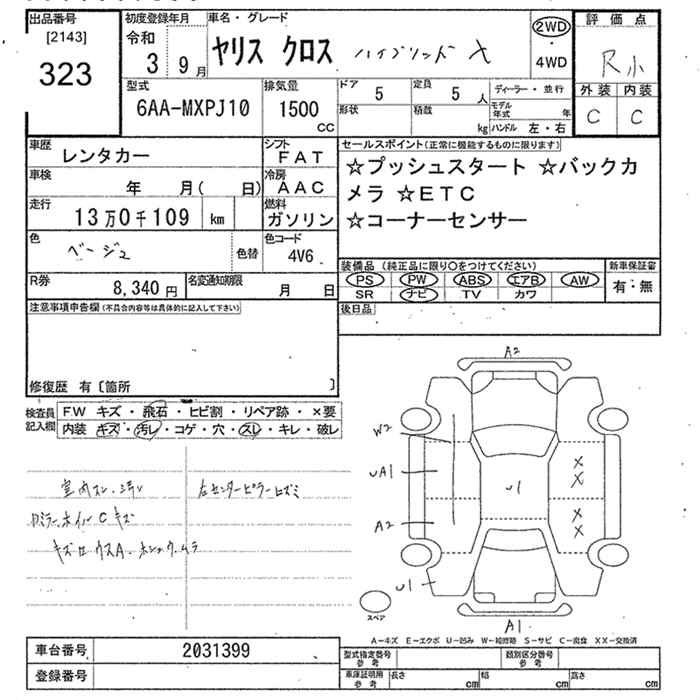 出品番号
[2143]
323
初度登録年月
令和
3 9月
車名・グレード
ヤリス クロス ハイブリッド X
2WD
・
4WD
評価点
R小
外装 内装
C C
型式
6AA-MXPJ10
排気量
1500
cc
ドア
5
形状
定員
5 人
積載
kg
ディーラー・並行
モデル年式 年
ハンドル 左・右
車歴
レンタカー
シフト
FAT
車検
年 月( 日)
冷房
AAC
走行
13万0千109 km
燃料
ガソリン
色
ベージュ
色替
色コード
4V6
R券
8,340円
名変通知期限
月 日
セールスポイント(正常に機能するものに限ります)
☆プッシュスタート ☆バックカ
メラ ☆ETC
☆コーナーセンサー
装備品(純正品に限り○をつけてください)
PS PW ABS エアB AW
SR ナビ TV カワ
新車保証書
有・無
後日品
注意事項申告欄(不具合内容等は具体的に記入して下さい)
修復歴 有〔箇所 〕
検査員
記入欄
FW キズ・飛石・ヒビ割・リペア跡・×要
内装 キズ・汚レ・コゲ・穴・スレ・キレ・破レ
室内スレ・汚レ
左センターピラーヒズミ
ホイルCキズ
A2
W2
UA1
A2
U1
U1
X
X
X
X
A1
スペア
A-キズ E-エクボ U-凹み W-補修跡 S-サビ C-腐食 XX-交換済
車台番号
2031399
登録番号
型式指定番号
参考
類別区分番号
参考
車庫証明用
参考
長さ cm
幅 cm
高さ cm